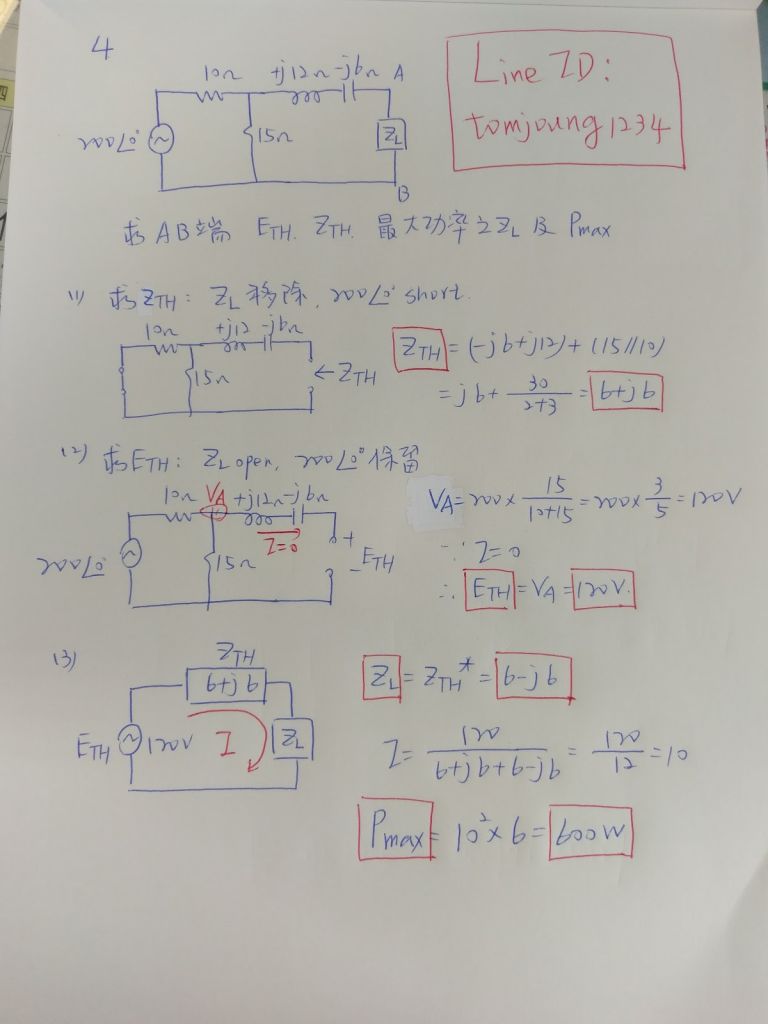 4
10Ω +j12Ω -j6Ω A
Line ID:
tomjoung1234
200∠0° 15Ω ZL
B
求AB端 ETH. ZTH. 最大功率之ZL及 Pmax
(1) 求ZTH: ZL移除, 200∠0° short.
10Ω +j12 -j6Ω
15Ω ←ZTH
ZTH = (-j6+j12)+(15//10)
= j6+ 30/2+3 = 6+j6
(2) 求ETH: ZL open, 200∠0° 保留
10Ω VA +j12Ω -j6Ω
I=0
200∠0° 15Ω + ETH -
VA=200× 15/10+15 =200× 3/5 =120V
∵ I=0
∴ ETH = VA = 120V.
(3)
ZTH
6+j6
ETH 120V I ZL
ZL = ZTH* = 6-j6
I= 120/6+j6+6-j6 = 120/12 =10
Pmax = 10²×6 = 600W